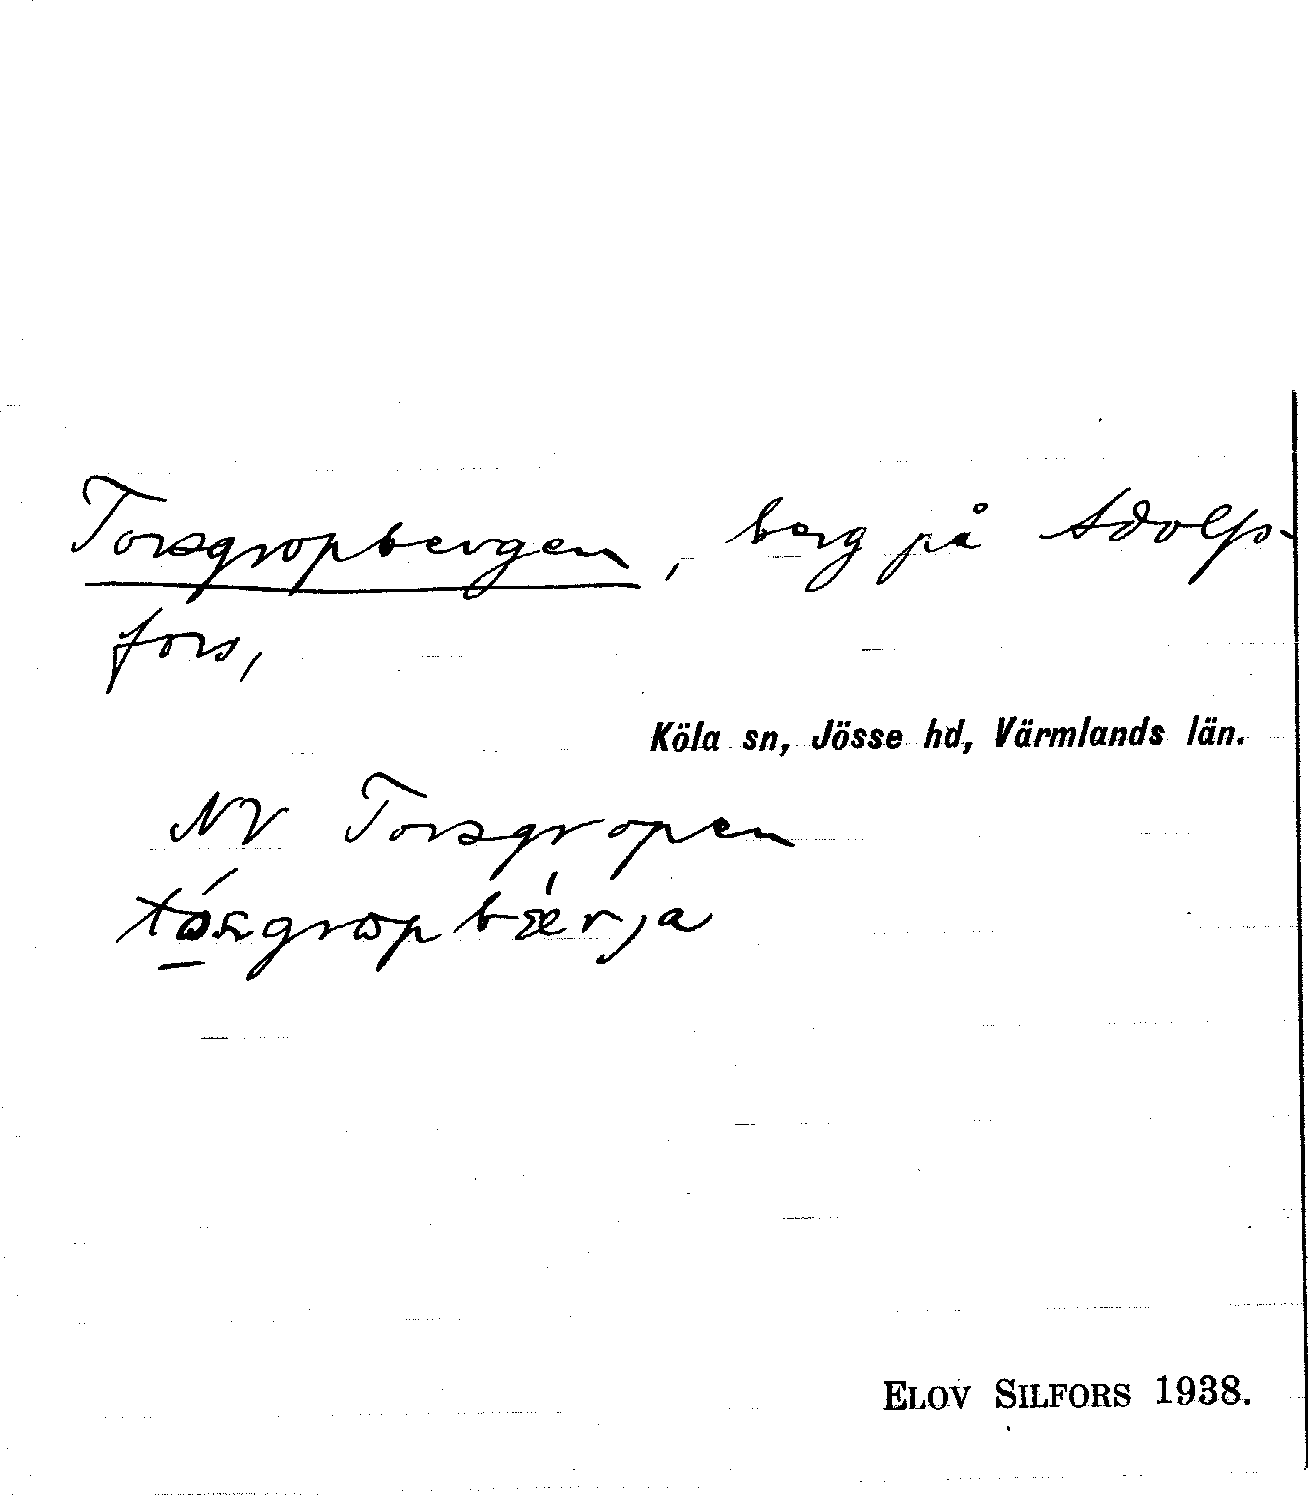 Torsgropbergen, berg på Adolfs-
fors,
Köla sn, Jösse hd, Värmlands län.
NV Torsgropen
ELOV SILFORS 1938.